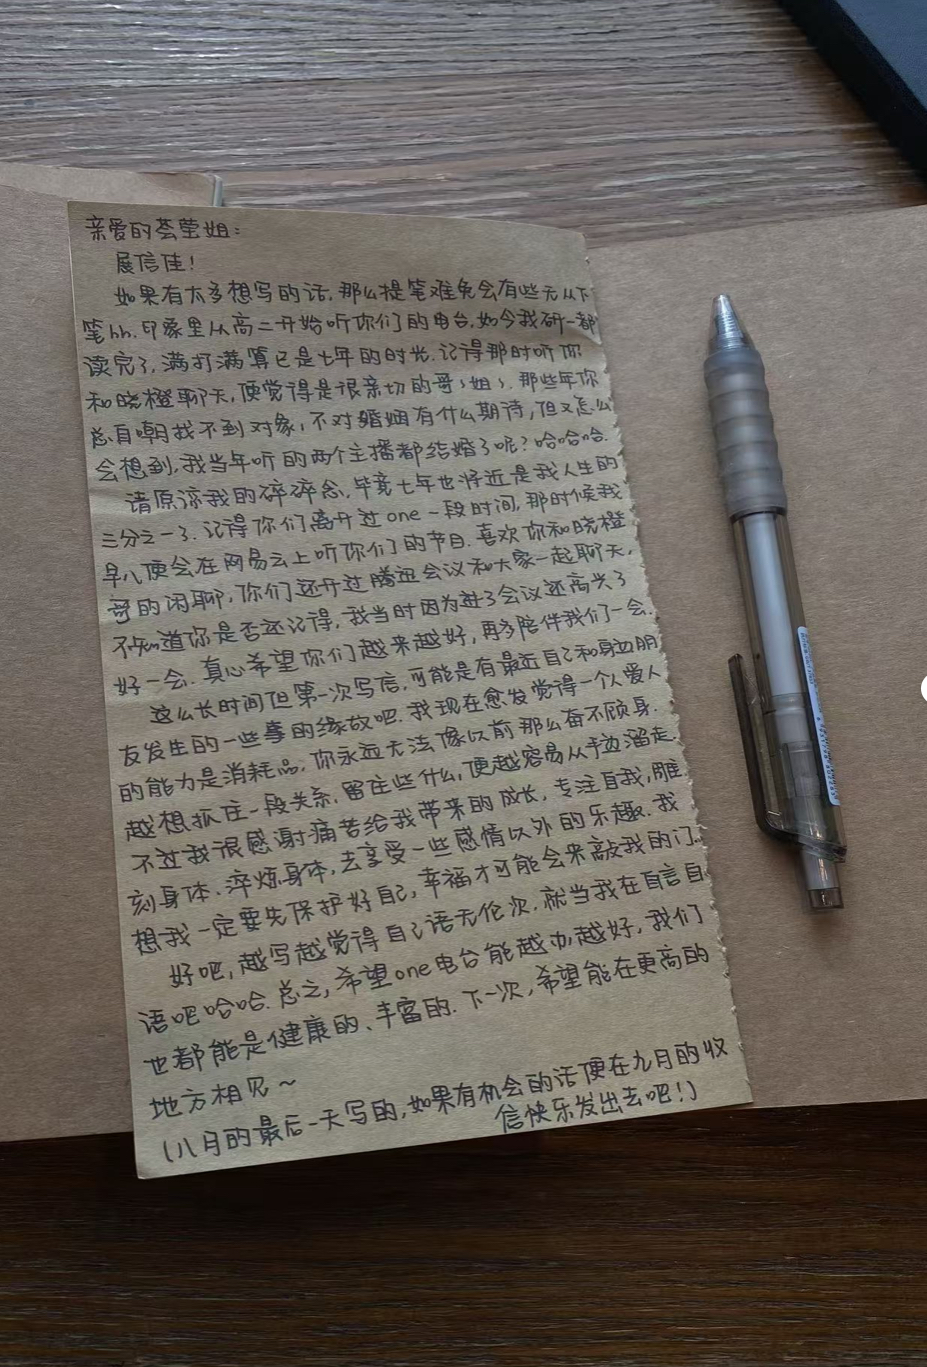 亲爱的荟莹姐：
展信佳！
如果有太多想写的话，那么提笔难免会有些无从下
笔hh.印象里从高二开始听你们的电台，如今我研一都
读完了，满打满算已是七年的时光.记得那时听你
和晓橙聊天，便觉得是很亲切的哥哥姐姐.那些年你
总自嘲找不到对象，不对婚姻有什么期待，但又怎么
会想到，我当年听的两个主播都结婚了呢？哈哈哈.
请原谅我的碎碎念，毕竟七年也将近是我人生的
三分之一了.记得你们离开过one一段时间，那时候我
早八便会在网易云上听你们的节目.喜欢你和晓橙
哥的闲聊，你们还开过腾迅会议和大家一起聊天，
不知道你是否还记得，我当时因为进了会议还高兴了
好一会.真心希望你们越来越好，再多陪伴我们一会.
这么长时间但第一次写信，可能是有最近自己和身边朋
友发生的一些事的缘故吧.我现在愈发觉得一个人爱人
的能力是消耗品，你永远无法像以前那么奋不顾身.
越想抓住一段关系，留住些什么，便越容易从手边溜走.
不过我很感谢痛苦给我带来的成长，专注自我，雕
刻身体、淬炼身体，去享受一些感情以外的乐趣.我
想我一定要先保护好自己，幸福才可能会来敲我的门.
好吧，越写越觉得自己语无伦次.就当我在自言自
语吧哈哈.总之，希望one电台能越办越好，我们
也都能是健康的、丰富的.下一次，希望能在更高的
地方相见～
（八月的最后一天写的，如果有机会的话便在九月的收
信快乐发出去吧！）